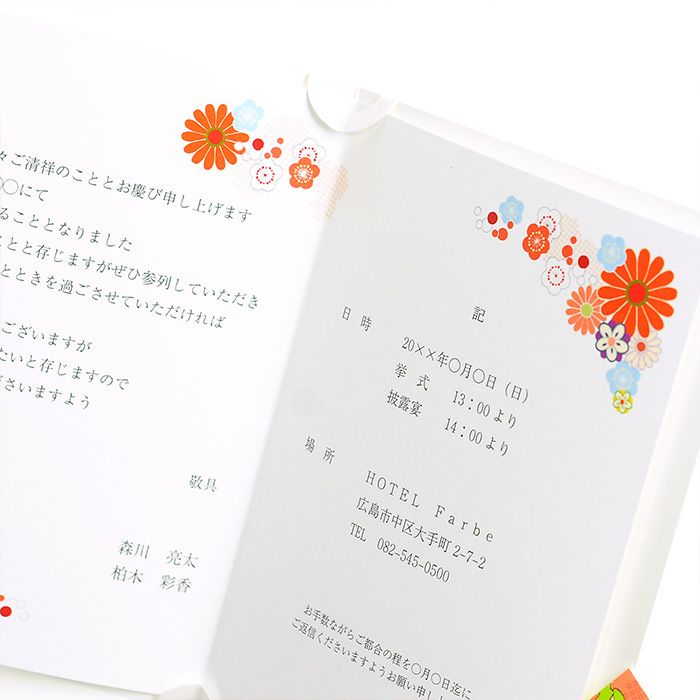 々ご清祥のこととお慶び申し上げます
〇〇にて
ることとなりました
ことと存じますがぜひ参列していただき
とときを過ごさせていただければ
ございますが
たいと存じますので
ださいますよう
敬具
森川 亮太
柏木 彩香
記
日 時
20××年〇月〇日（日）
挙 式 13：00より
披露宴 14：00より
場 所
HOTEL Farbe
広島市中区大手町2-7-2
TEL 082-545-0500
お手数ながらご都合の程を〇月〇日迄に
ご返信くださいますようお願い申し